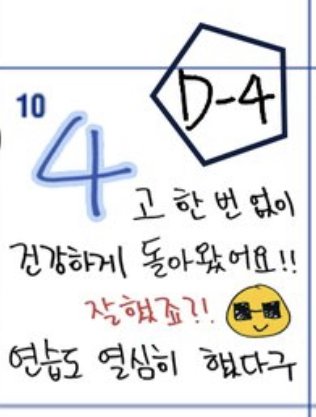 10
D-4
4고 한 번 없이
건강하게 돌아왔어요!!
잘했죠?!
연습도 열심히 했다구